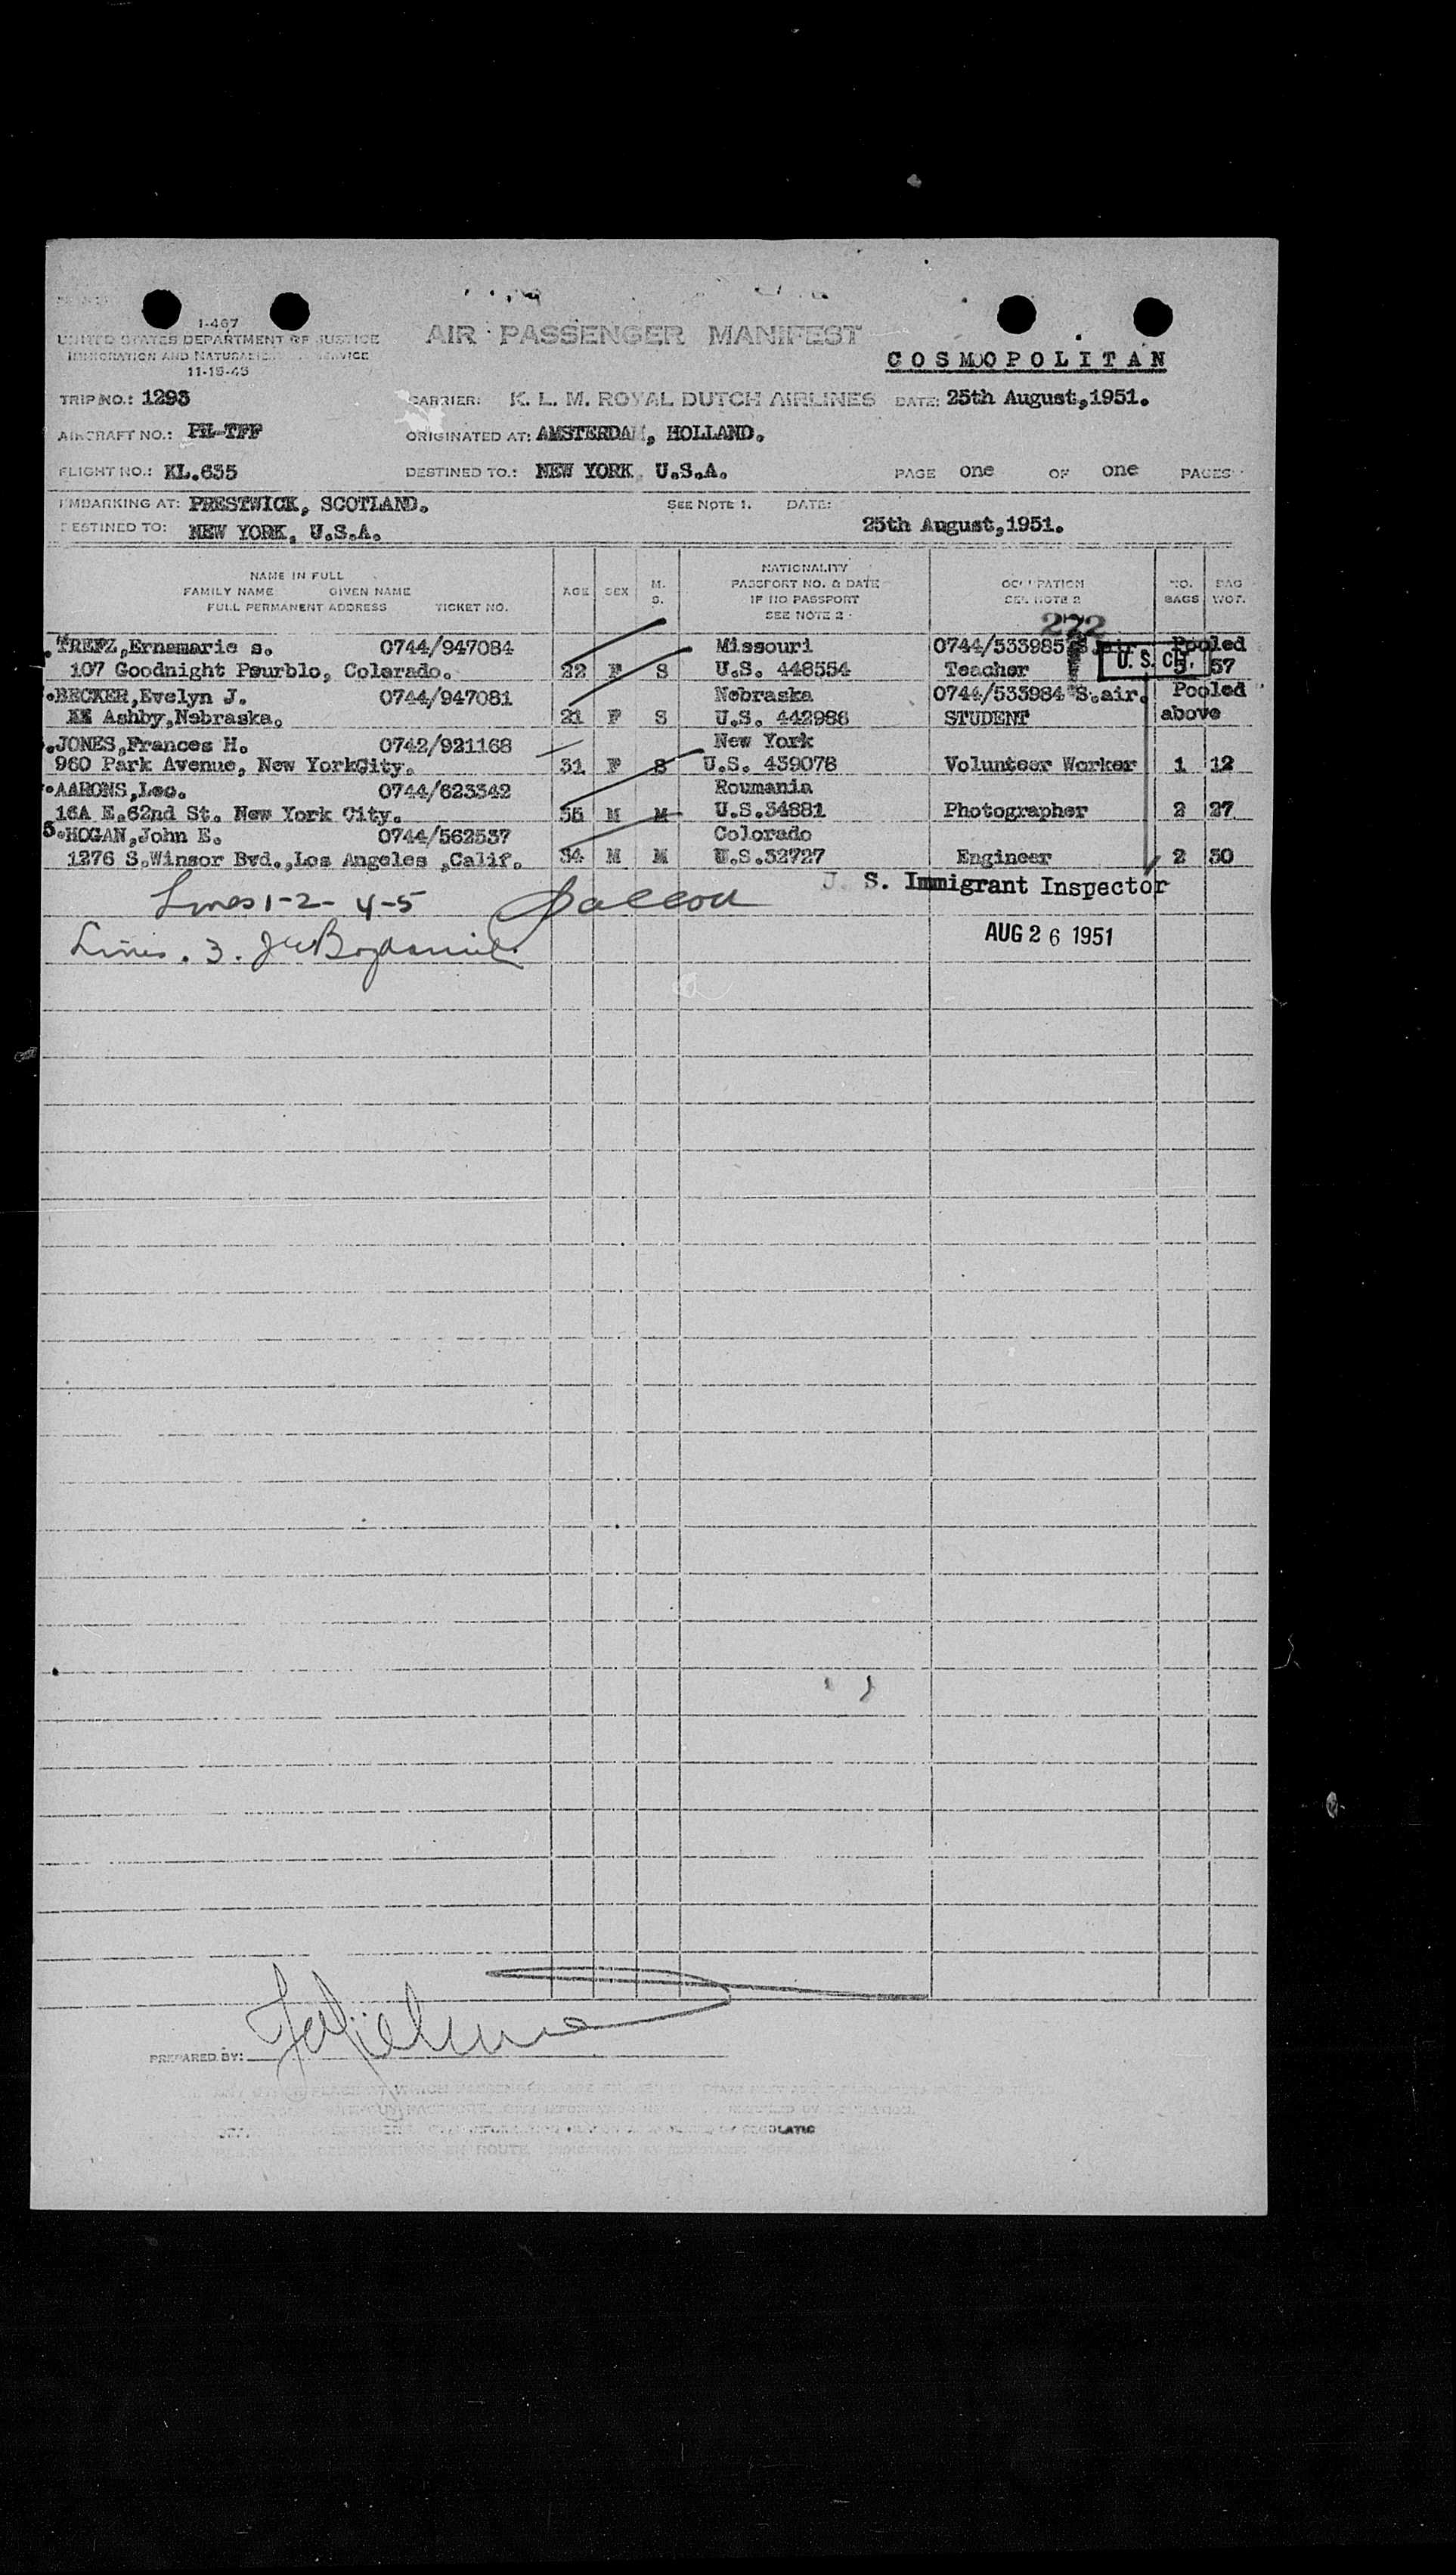 1-467
UNITED STATES DEPARTMENT OF JUSTICE
IMMIGRATION AND SERVICE
11-15-45
AIR PASSENGER MANIFEST
COSMOPOLITAN
TRIP NO.: 1293 CARRIER: K. L. M. ROYAL DUTCH AIRLINES DATE: 25th August,1951.
AIRCRAFT NO.: PH-TFF ORIGINATED AT: AMSTERDAM, HOLLAND.
FLIGHT NO.: KL.635 DESTINED TO.: NEW YORK U.S.A. PAGE one OF one PAGES
EMBARKING AT: PRESTWICK, SCOTLAND. SEE NOTE 1. DATE:
DESTINED TO: NEW YORK, U.S.A. 25th August,1951.
NAME IN FULL
FAMILY NAME GIVEN NAME
FULL PERMANENT ADDRESS TICKET NO.
AGE SEX M. S.
NATIONALITY
PASSPORT NO. & DATE
IF NO PASSPORT
SEE NOTE 2
OCCUPATION
SEE NOTE 2
NO. BAGS
BAG WGT.
272
TREFZ,Ernamarie s. 0744/947084 Missouri 0744/533985 S.air Pooled
107 Goodnight Peurblo, Colorado. 22 F S U.S. 448554 Teacher U. S. Cit. 5 57
BECKER,Evelyn J. 0744/947081 Nebraska 0744/533984 S.air. Pooled
Ashby,Nebraska. 21 F S U.S. 442986 STUDENT above
JONES,Frances H. 0742/921168 New York
960 Park Avenue, New YorkCity. 31 F S U.S. 439078 Volunteer Worker 1 12
AARONS,Leo. 0744/623342 Roumania
16A E.62nd St. New York City. 55 M M U.S.34881 Photographer 2 27
5 HOGAN,John E. 0744/562537 Colorado
1276 S.Winsor Bvd.,Los Angeles ,Calif. 34 M M U.S.32727 Engineer 2 30
U. S. Immigrant Inspector
Lines 1-2-4-5
AUG 26 1951
Lines. 3.
PREPARED BY: